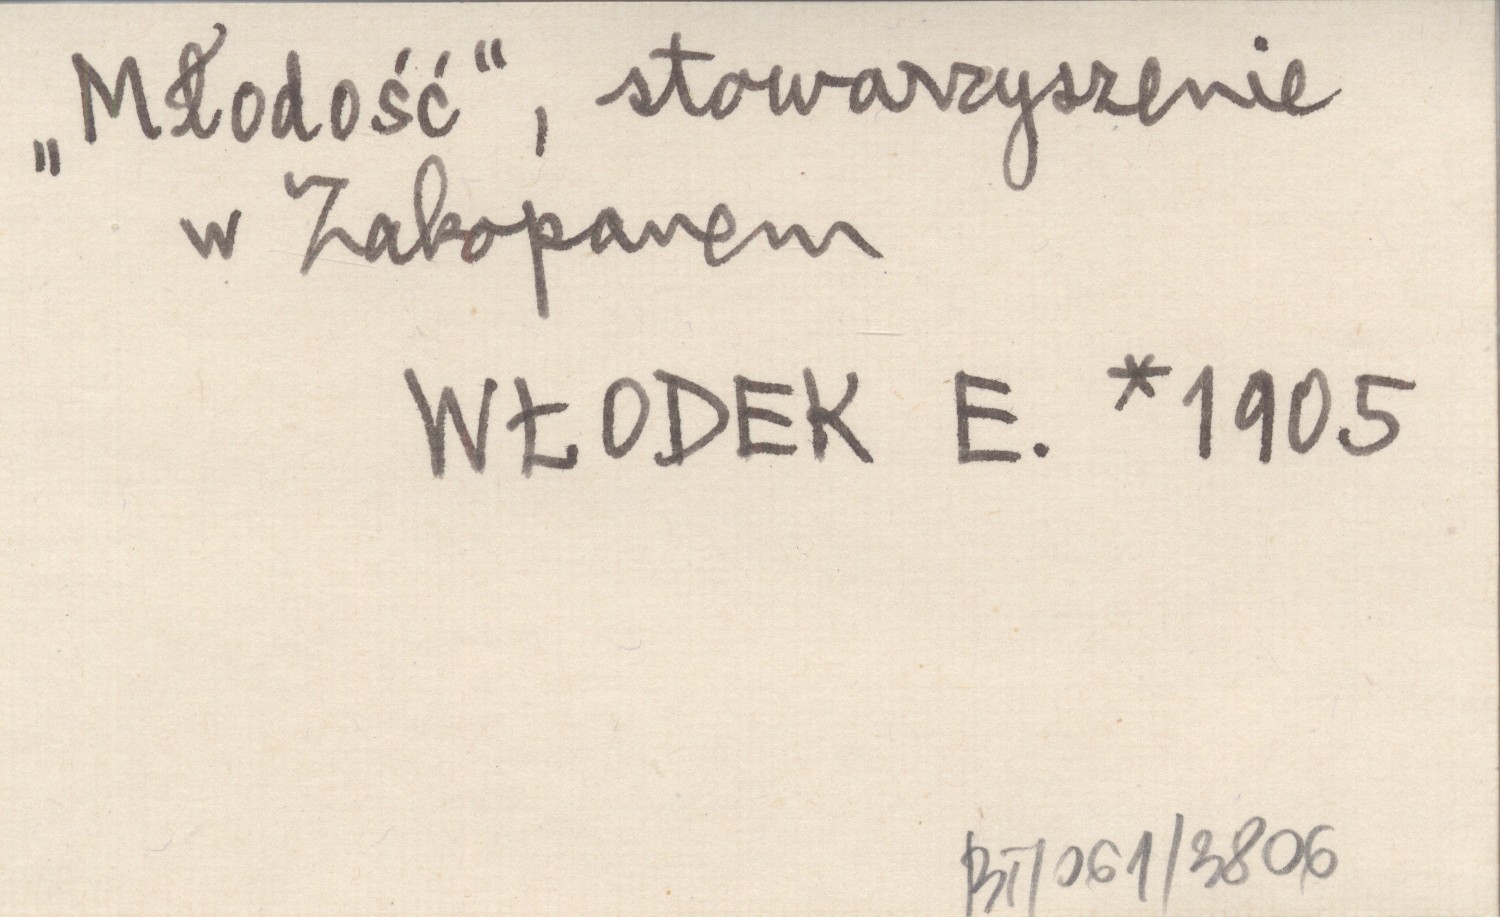 „Młodość“, stowarzyszenie
w Zakopanem
WŁODEK E. *1905
BI/061/3806